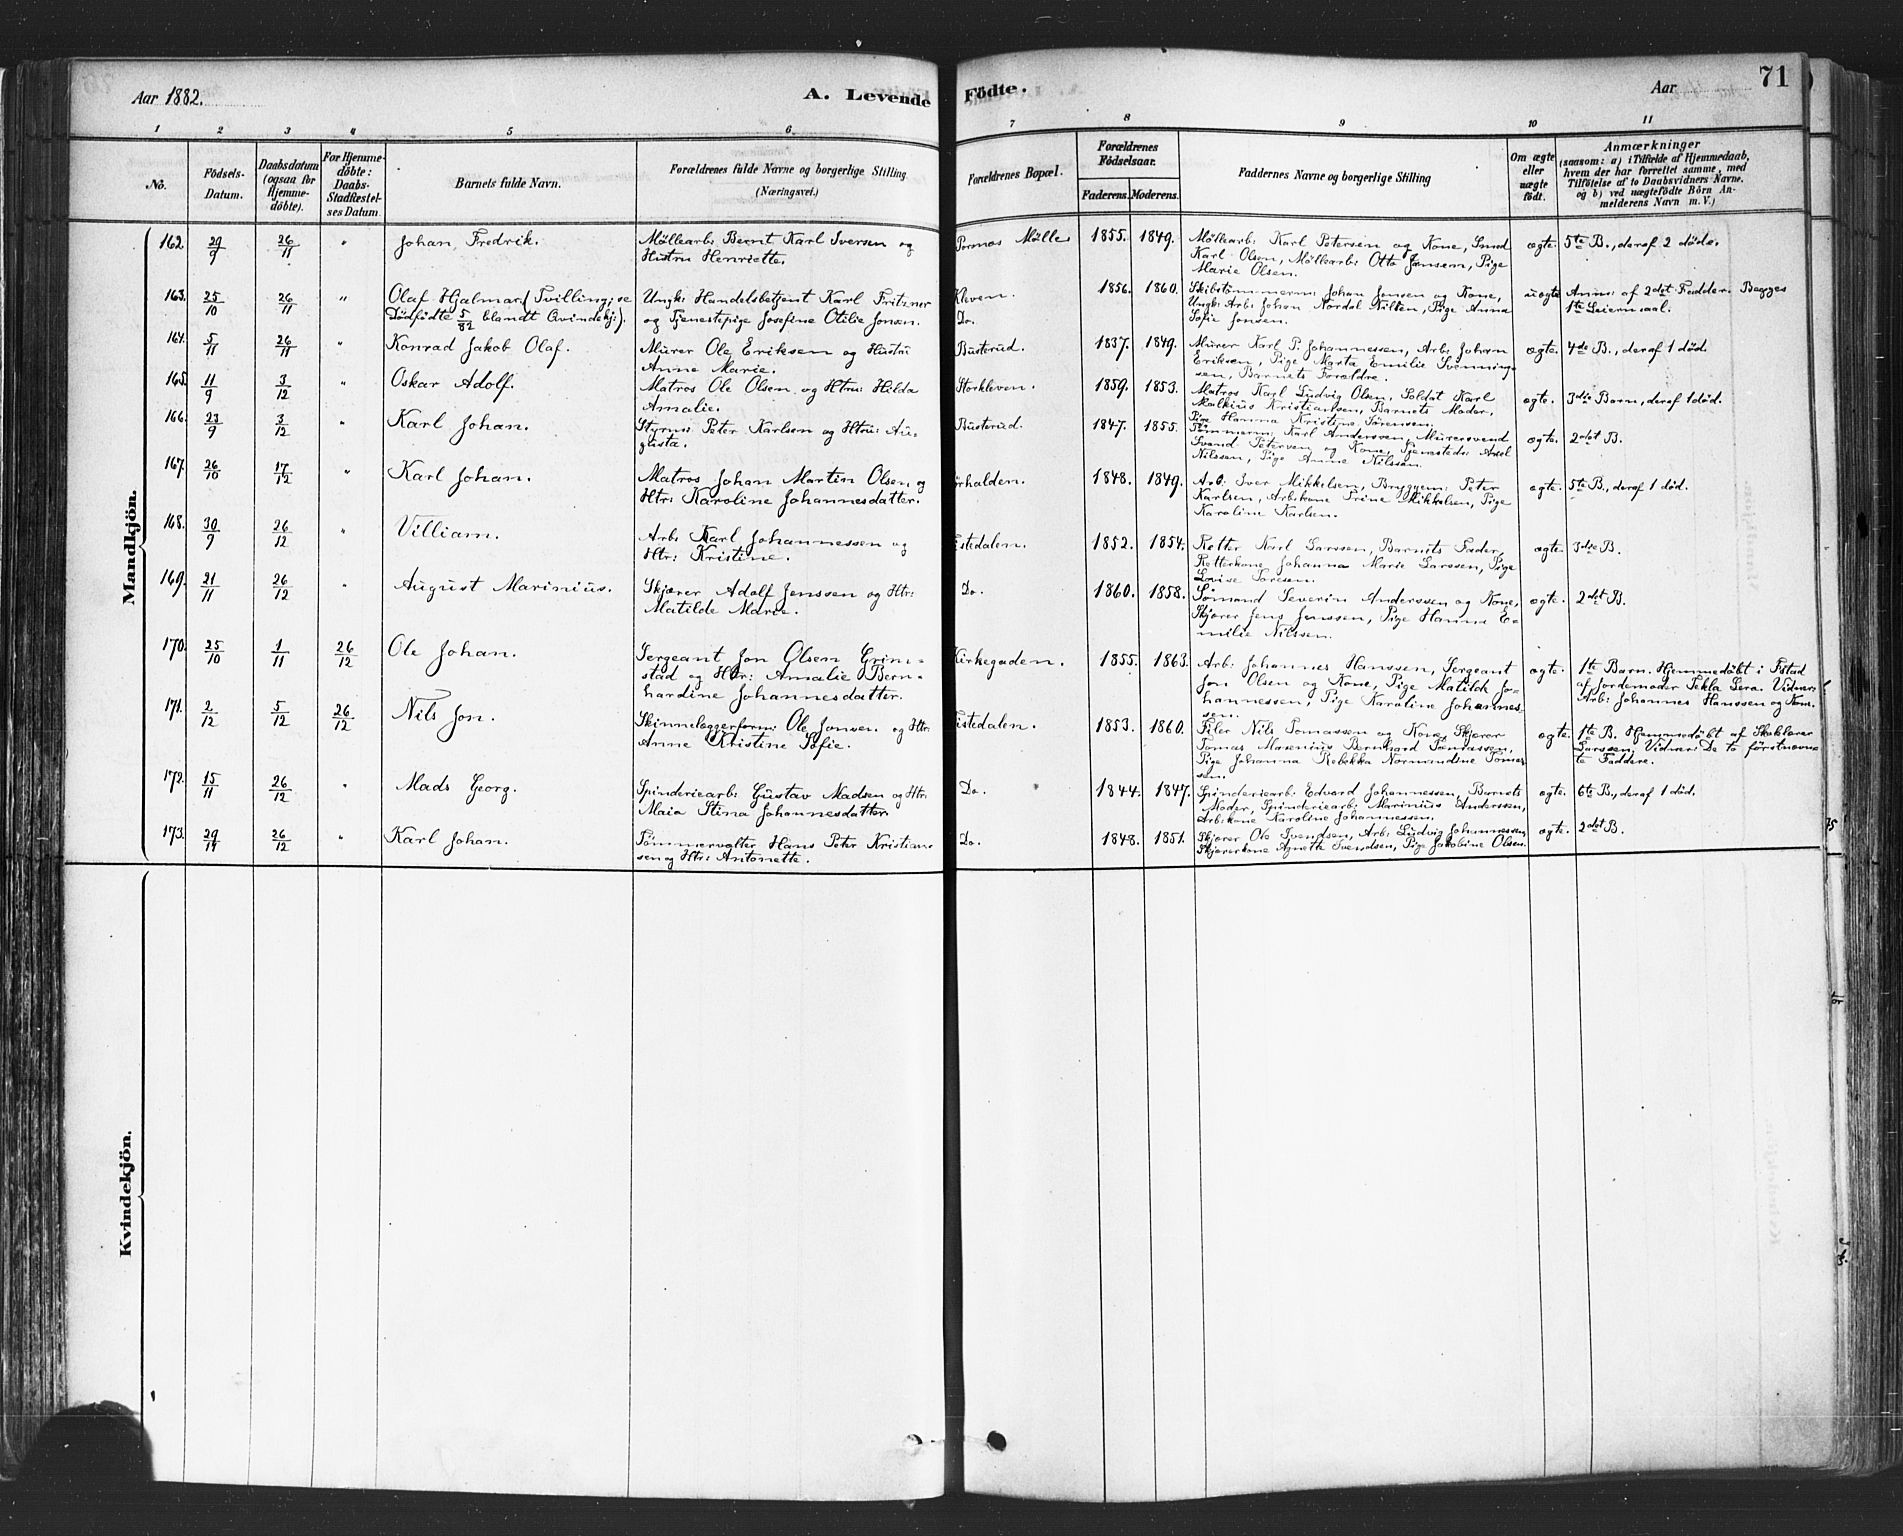 Aar 1882. A. Levende Födte. Aar 71
1 2 3 4 5 6 7 8 9 10 11
No.
Födsels-Datum.
Daabsdatum (ogsaa for Hjemme-döbte).
For Hjemme-döbte: Daabs-Stadfæstel-ses Datum.
Barnets fulde Navn.
Forældrenes fulde Navne og borgerlige Stilling
(Næringsvei.)
Forældrenes Bopæl.
Forældrenes Födselsaar.
Faderens. Moderens.
Faddernes Navne og borgerlige Stilling
Om ægte eller uægte födt.
Anmærkninger
(saasom: a) i Tilfælde af Hjemmedaab,
hvem der har forrettet samme, med
Tilföielse af to Daabsvidners Navne.
og b) ved uægtefödte Börn An-
melderens Navn m. V.)
Mandkjön.
162. 29/9 26/11 " Johan Fredrik. Möllearb: Bernt Karl Iversen og Mölle 1855. 1849. Möllearb: Karl Petersen og Kone, Smed ægte. 5te B., deraf 2 döde.
Hustru Henriette. Karl Olsen, Möllearb: Otto Jensen, Pige
Marie Olsen.
163. 25/10 26/11 " Olaf Hjalmar (Tvilling; se Ungk: Handelsbetjent Karl Fritzner Kleven. 1856. 1860. Skibstömmerm: Johan Jonsen og Kone, uægte Anm: af 2det Fadder. Begges
Dödfödte 5/82 blandt Qvindekj:). og Tjenestepige Josefine Otilie Jonsen. Do. Ungk: Arb: Johan Nordal Nilsen, Pige Anna 1te Leiermaal.
Sofie Jonsen.
164. 5/11 26/11 " Konrad Jakob Olaf. Murer Ole Eriksen og Hustru Busterud. 1837. 1849. Murer Karl P. Johannessen, Arb: Johan ægte. 4de B., deraf 1 död.
Anne Marie. Eriksen, Pige Marta Emilie Svenning-
sen, Barnets Forældre.
165. 11/9 3/12 " Oskar Adolf. Matros Ole Olsen og Htru: Hilda Storkleven. 1859. 1853. Matros Karl Ludvig Olsen, Soldat Karl ægte. 3die Barn, deraf 1 död.
Amalie. Malkius Kristiansen, Barnets Moder,
Pige Hanna Kristine Sörensen.
166. 23/9 3/12 " Karl Johan. Styrm: Peter Karlsen og Htru: Au- Busterud. 1847. 1855. Tömmerm: Karl Andersen, Murersvend ægte. 2det B.
gusta. Svend Petersen og Kone, Tjenestedr: Axel
Nilssen, Pige Anne Nilssen.
167. 26/10 17/12 " Karl Johan. Matros Johan Martin Olsen og 1848. 1849. Arb: Iver Mikkelsen, Bryggem: Peter ægte. 5te B., deraf 1 död.
Htr: Karoline Johannesdatter. Karlsen, Arbkone Trine Mikkelsen, Pige
Karoline Karlsen.
168. 30/9 26/12 " Villiam. Arb: Karl Johannessen og Tistedalen. 1852. 1854. Retter Karl Larssen, Barnets Fader, ægte 3die B.
Htr: Kristine. Retterkone Johanna Marie Larssen, Pige
Lovise Toresen.
169. 21/11 26/12 " August Marinius. Skjærer Adolf Jenssen og Htr: Do. 1860. 1858. Sömand Severin Anderssen og Kone, ægte. 2det B.
Matilde Marie. Skjærer Jens Jenssen, Pige Hanna E-
milie Nilssen.
170. 25/10 1/11 26/12 Ole Johan. Sergeant Jon Olsen Grim- Kirkegaden. 1855. 1863. Arb: Johannes Hanssen, Sergeant ægte. 1te Barn. Hjemmedöbt i
stad og Htr: Amalie Bern- Jon Olsen og Kone, Pige Matilde Jo- af Jordemoder Tekla Lera. Vidner:
hardine Johannesdatter. hannessen, Pige Karoline Johannes- Arb: Johannes Hanssen og Kone.
sen.
171. 2/12 5/12 26/12 Nils Jon. Ole Jonsen og Htr: Tistedalen. 1853. 1860. Filer Nils Tomassen og Kone, Skjærer ægte. 1te B. Hjemmedöbt af Skolelærer
Anne Kristine Sofie. Tomas Marenius Bernhard Tomassen, Larssen. Vidner: De to förstnævn-
Pige Johanna Rebekka Normandine Tomas- te Faddere.
sen.
172. 15/11 26/12 " Mads Georg. Spinderiearb: Gustav Madsen og Htr: Do. 1844. 1847. Spinderiearb: Edvard Johannessen, Barnets ægte. 6te B., deraf 1 död.
Maia Stina Johannesdatter. Moder, Spinderiearb: Marinius Anderssen,
Arbkone Karoline Johannessen.
173. 29/11 26/12 " Karl Johan. Tömmervalter Hans Peter Kristian- Do. 1848. 1851. Skjærer Ole Svendsen, Arb: Ludvig Johannessen, ægte. 2det B.
sen og Htr: Antonette. Skjærerkone Agnette Svendsen, Pige Jakobine Olsen.
Kvindekjön.